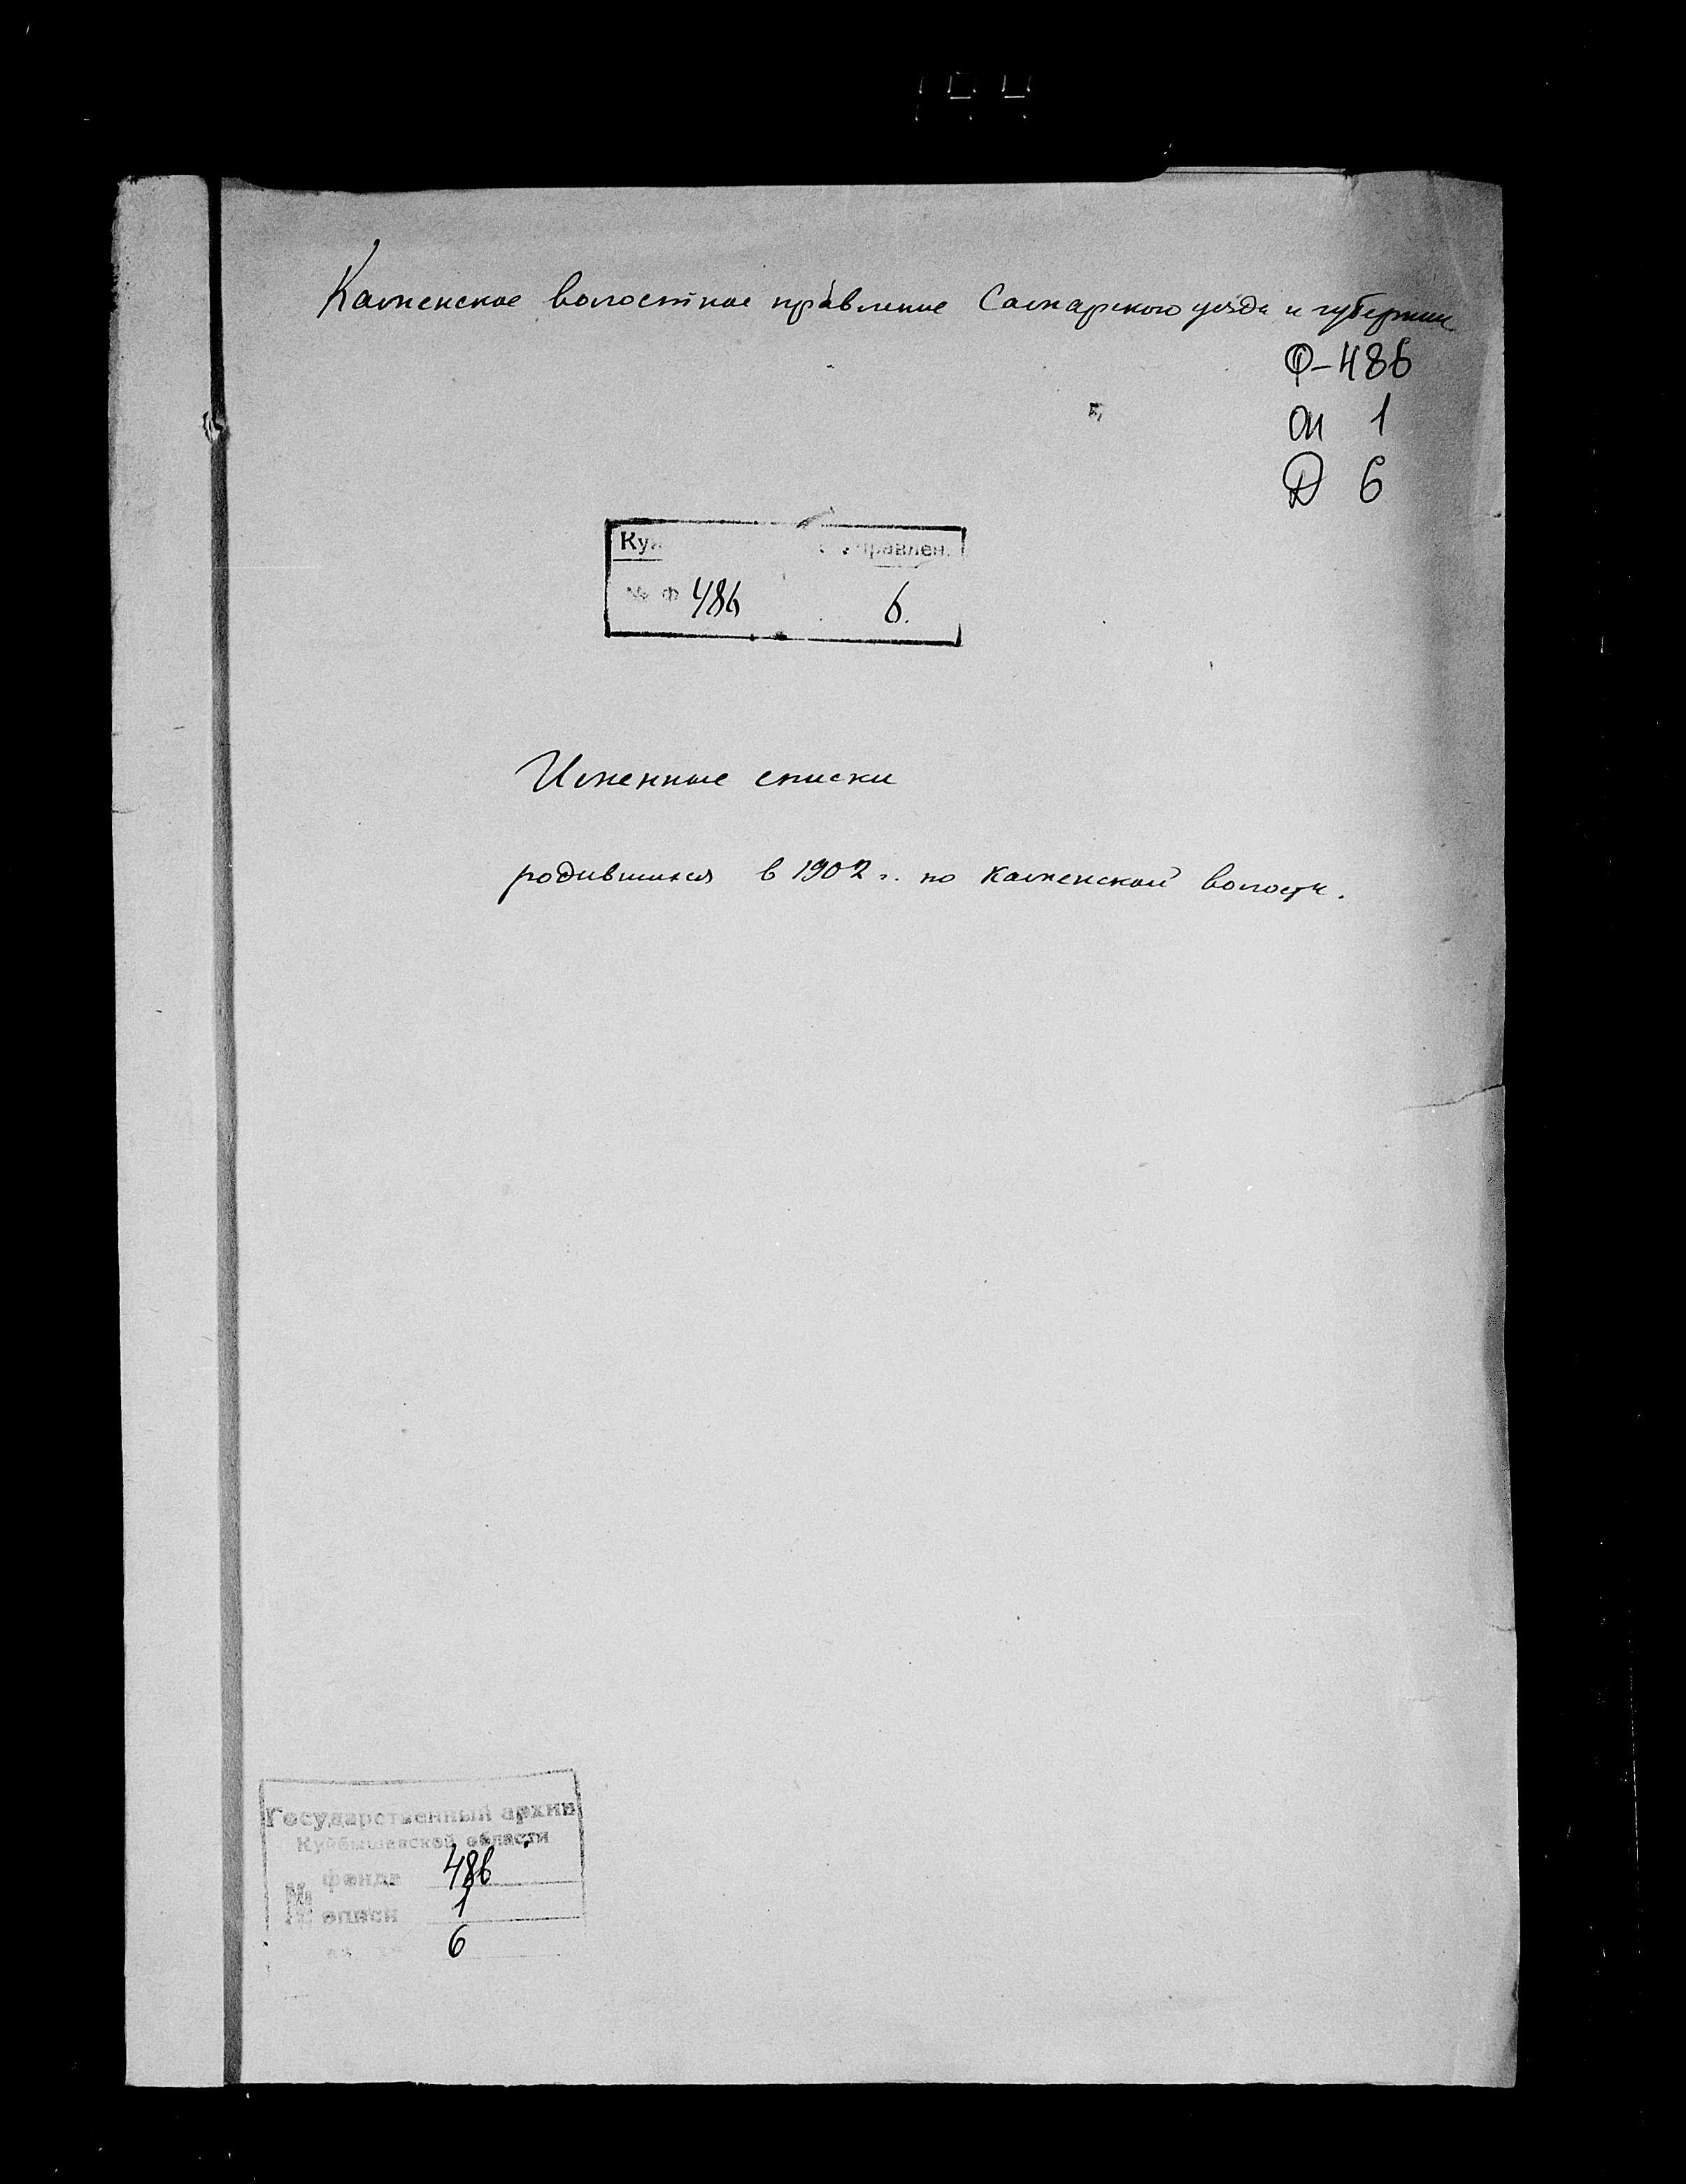 Каменское волостное правление Самарского уезда и губернии
Ф-486
оп 1
Д 6
486 6.
Именные списки
родившихся в 1902 г. по Каменской волости.
Государственный архив
Куйбышевской области
№ фонда 486
описи 1
6